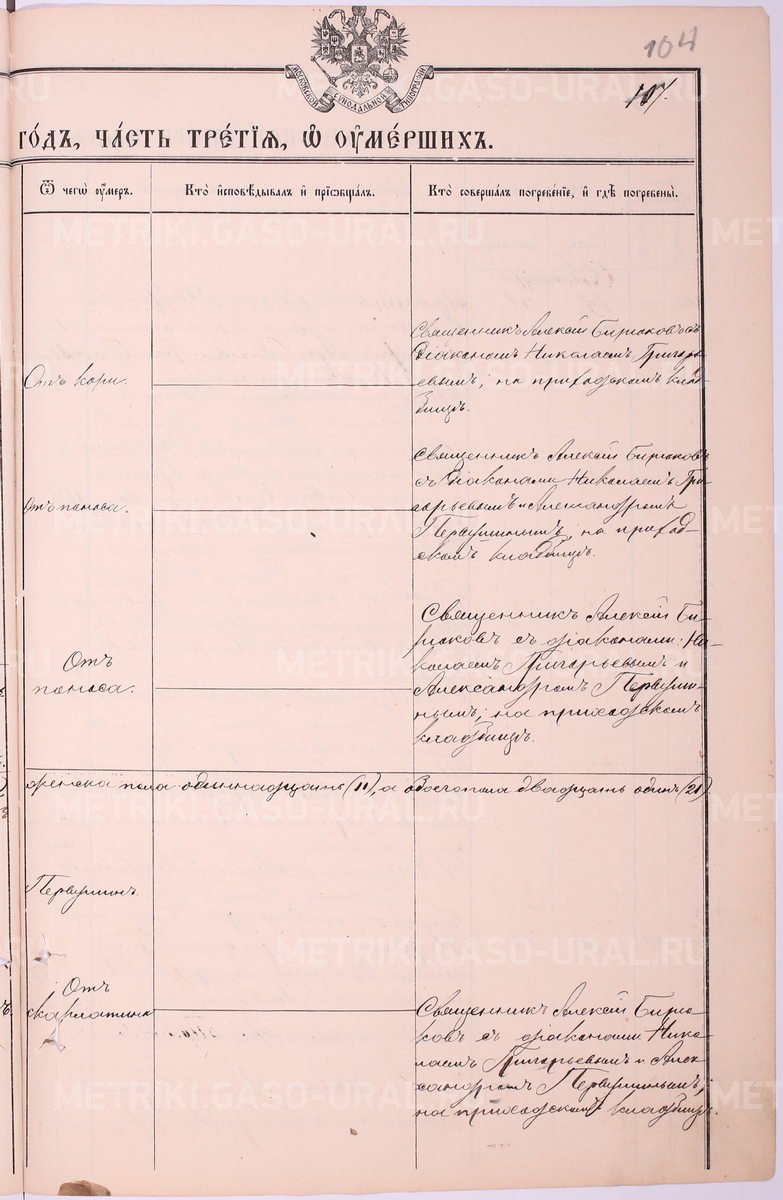 104
107.
МОСКОВСКОЙ СѴНОДАЛЬНОЙ ТИПОГРАФІИ
ГО́ДЪ, ЧА́СТЬ ТРЕ́ТІѦ, Ѡ҆ ОУ҆МЕ́РШИХЪ.
Ѿ чегѡ̀ оу҆́меръ.
Кто̀ и҆сповѣ́дывалъ и҆ прїѡбща́лъ.
Кто̀ соверша́лъ погребе́нїе, и҆ гдѣ̀ погребены̀.
Отъ кори.
Священникъ Алексій Бирюковъ съ
діакономъ Николаемъ Григорь-
евымъ; на приходскомъ клад-
бищѣ.
Отъ поноса.
Священникъ Алексій Бирюковъ
съ діаконами Николаемъ Гри-
горьевымъ и Александромъ
Первушинымъ; на приход-
скомъ кладбищѣ.
Отъ
поноса.
Священникъ Алексій Би-
рюковъ съ діаконами: Ни-
колаемъ Григорьевымъ и
Александромъ Первуши-
нымъ; на приходскомъ
кладбищѣ.
женска пола одиннадцать (11), а обоего пола двадцать одинъ (21).
Первушинъ.
Отъ
скарлатины
Священникъ Алексій Бирю-
ковъ съ діаконами Нико-
лаемъ Григорьевымъ и Алек-
сандромъ Первушинымъ;
на приходскомъ кладбищѣ.
METRIKI.GASO-URAL.RU